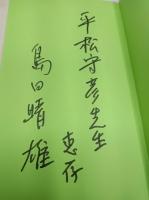 平松守彦先生
恵存
島田晴雄